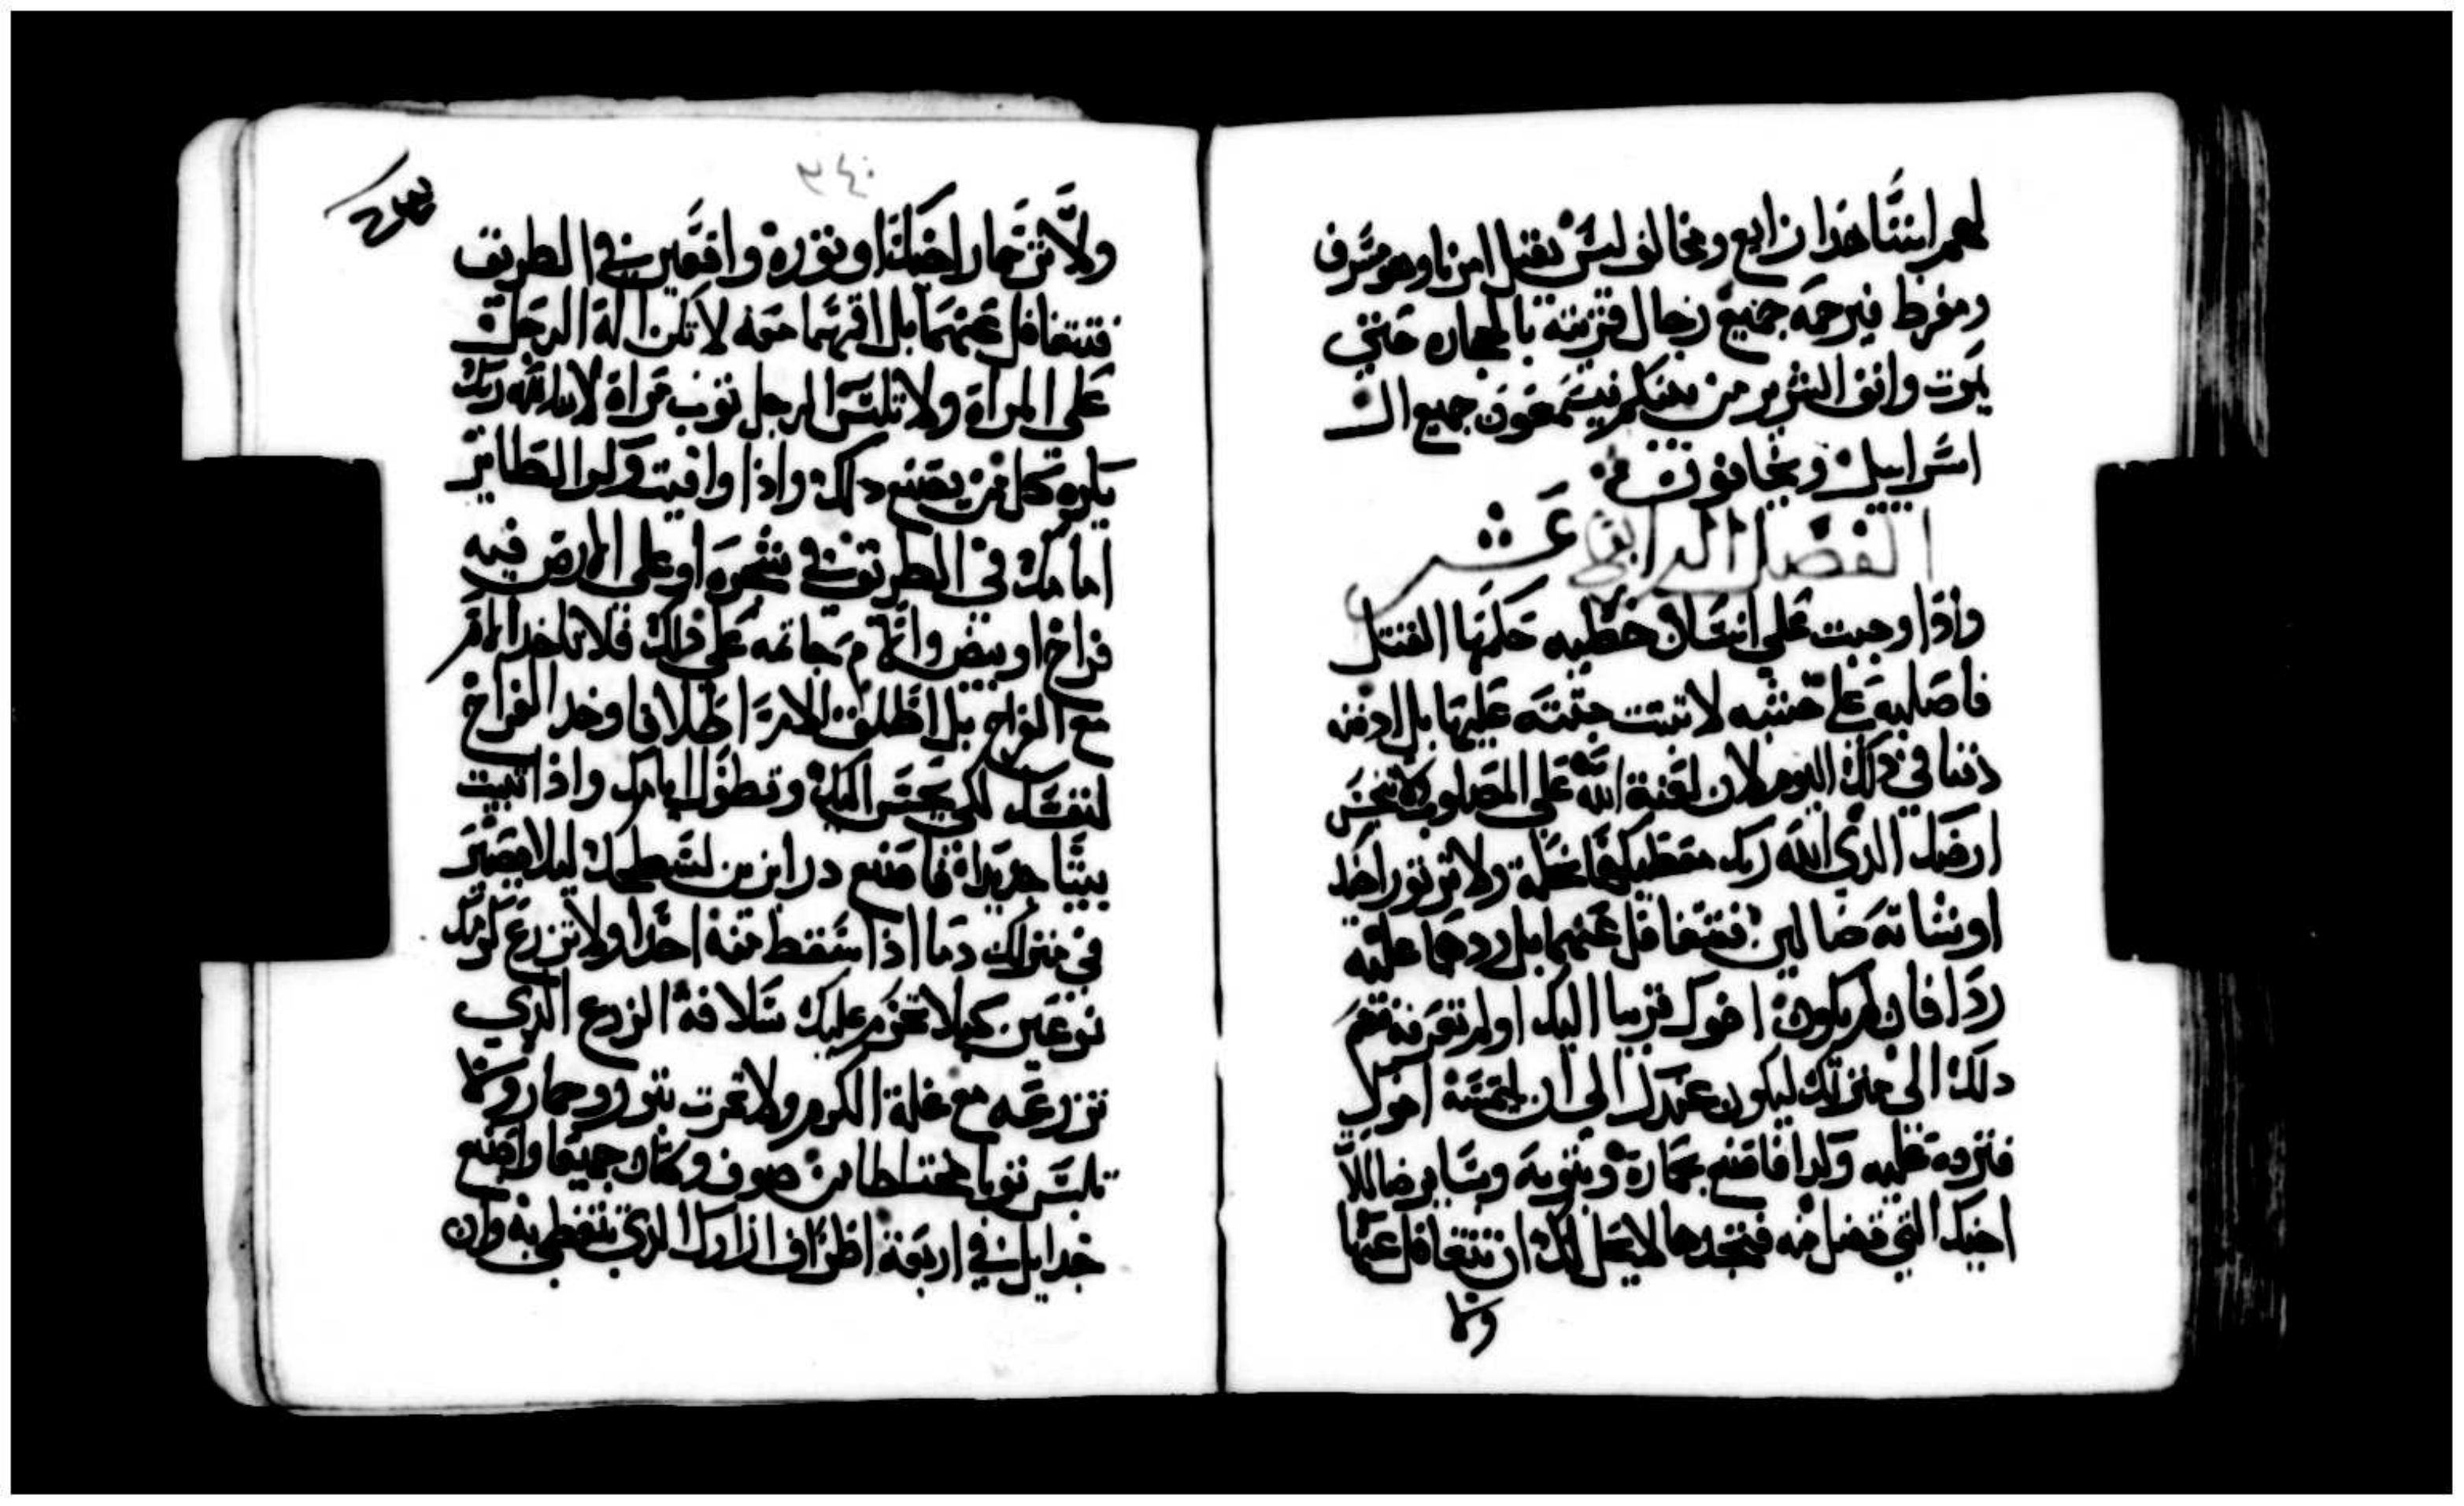 لهم ابننا هذا زايع ومخالف ليس يقبل امرنا وهو مسرف
ومفرط فيرجمه جميع رجال قريته بالحجاره حتي
يموت وانفي الشرير من بينكم فيسمعون جميع ال
اسراييل ويخافون
الفصل الرابع عشر
واذا وجبت علي انسان خطيه حكمها القتل
فاصلبه علي خشبه لا تبيت جثته عليها بل ادفنه
دفنا في ذلك اليوم لان لعنة الله علي المصلوب لا تنجس
ارضك الذي الله ربك معطيكها نحلة ولا تري ثور اخيك
او شاته ضالين فتتغافل عنهما بل ردهما عليه
ردا فان لم يكون اخوك قريبا اليك او لم تعرفه فضم
ذلك الي منزلك ليكون عندك الي ان يلتمسه اخوك
فترده عليه وكذا فاصنع بحماره وثوبه وساير ضالة
اخيك التي تضل منه فتجدها لا يحل لك ان تتغافل عنها
ولا
٢٤٠
ولا تري حمار اخيك او ثوره واقعين في الطريق
فتتغافل عنهما بل اقمهما معه لا تكن الة الرجل
علي المراة ولا تلبس الرجل ثوب مراة لان الله ربك
يكره كل من يصنع ذلك واذا وافيت وكر الطاير
امامك في الطريق في شجره او علي الارض فيه
فراخ او بيض والام جاثمه علي ذلك فلا تاخذ الام
مع الفراخ بل اطلق الام اطلاقا وخذ الفراخ
لنفسك لكي يحسن اليك وتطول ايامك واذا بنيت
بيتا جديدا فاصنع درابزين لسطحك ليلا تصير
في منزلك دما اذا سقط منه احدا ولا تزرع كرمك
نوعين كيلا تحرم عليك سلافة الزرع الذي
تزرعه مع غلة الكرم ولا تحرث بثور وحمار ولا
تلبس ثوبا مختلطا من صوف وكتان جميعا واصنع
جدايل في اربعة اطراف ازارك الذي تتغطي به وان